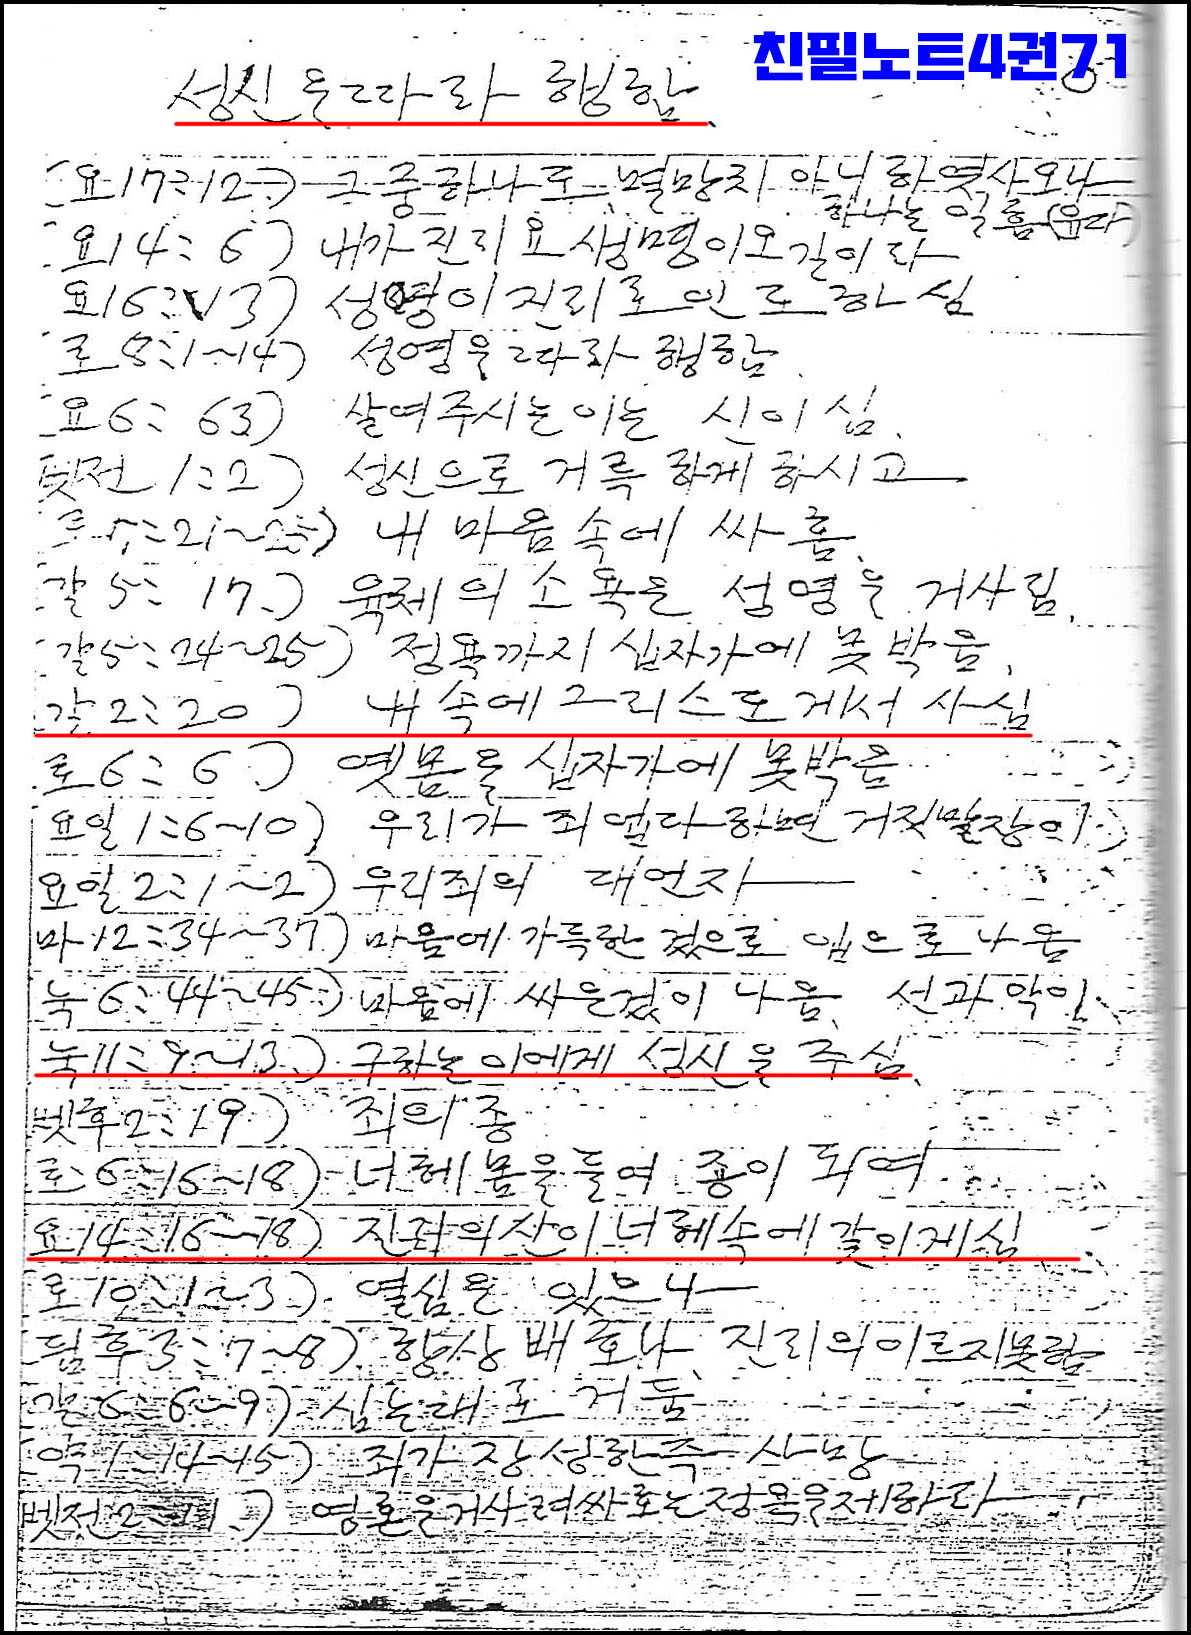 친필노트4권71
성신을 따라 행함.
(요17:12) 그중 하나도 멸망치 아니하엿사오나
하나는 잃흠(유다)
(요14:6) 내가 진리요 생명이오 길이라
요16:13) 성영이 진리로 인도하심
로8:1~14) 성영을 따라 행함.
(요6:63) 살여주시는이는 신이심.
벳전1:2) 성신으로 거륵하게 하시고
로7:21~25) 내 마음속에 싸홈.
(갈5:17.) 육체의 소욕은 성영을 거사림.
(갈5:24~25) 정욕까지 십자가에 못박음.
갈2:20) 내 속에 그리스도게서 사심
로6:6.) 옛몸을 십자가에 못박음
요일1:6~10) 우리가 죄 업다 하면 거짓말장이
요일2:1~2) 우리죄의 대언자
마12:34~37) 마음에 가득한 겄으로 입으로 나옴
눅6:44~45.) 마음에 싸은겄이 나옴. 선과 악이.
눅11:9~13.) 구하는이에게 성신을 주심.
벳후2:19.) 죄의 종
로6:16~18) 너헤 몸을 들여 종이 되여
요14:16~18) 진리의 산이 너헤속에 갈이 게심
(로10:1~3.) 열심은 있으나
(딤후3:7~8) 항상 배호나 진리의 이르지못함
(갈6:6~9) 심는대로 거둠
(약1:14~15) 죄가 장성한즉 사망
벳전2:11.) 영혼을 거사려 싸호는 정욕을 제하라